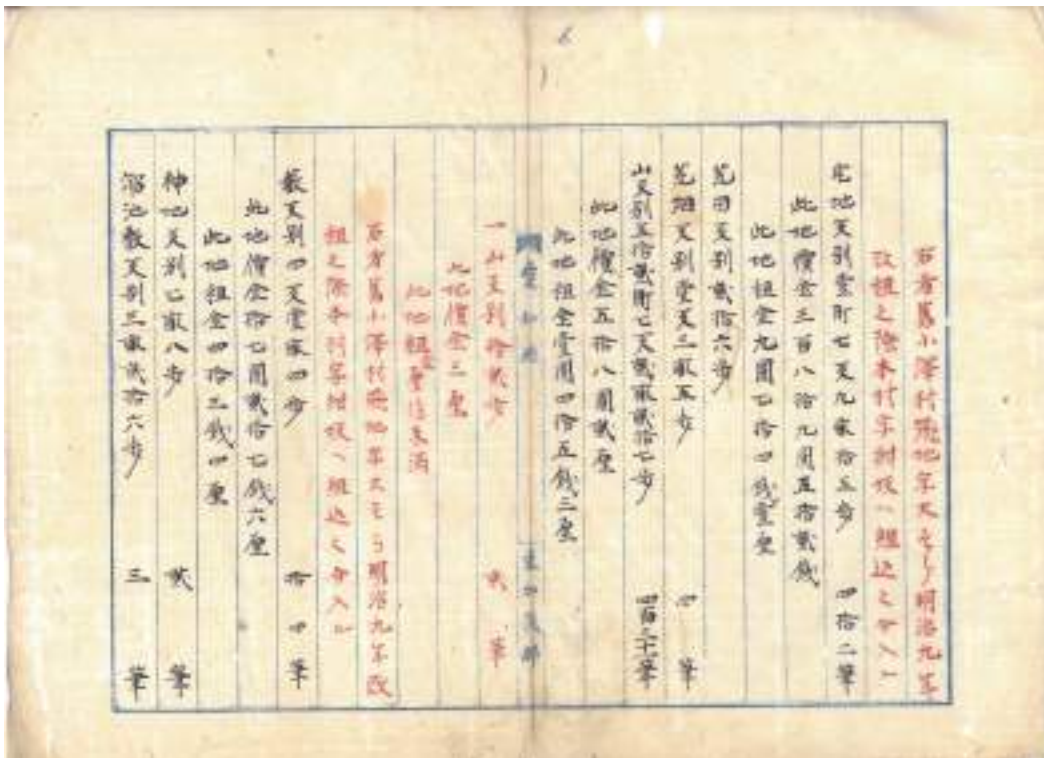 右者舊小澤村飛地字大そり明治九年
改租之際本村字村坂ヘ組込之分入ル
宅地反別壹町七反九畝拾五歩 四拾二筆
此地價金三百八拾九圓五拾貳錢
此地租金九圓七拾四錢壹厘
荒田反別貳拾六歩
荒畑反別壹反三畝五歩 四筆
山反別五拾貳町七反貳畝貳拾七歩
此地價金五拾八圓貳厘
此地租金壹圓四拾五錢三厘
一山反別拾貳歩 貳筆
此地價金三厘
此地租金厘位未満
右者舊小澤村飛地字大そり明治九年改
租之際本村字村坂ヘ組込之分入ル
藪反別四反壹畝四歩 拾四筆
此地價金拾七圓貳拾七錢六厘
此地租金四拾三錢四厘
神地反別七畝八歩 貳筆
溜池敷反別三畝貳拾六歩 三筆